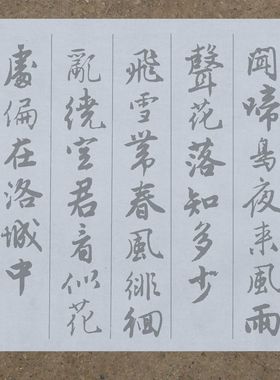 聞啼鳥夜来風雨
聲花落知多少
飛雪帶春風徘徊
亂繞空君看似花
處偏在洛城中